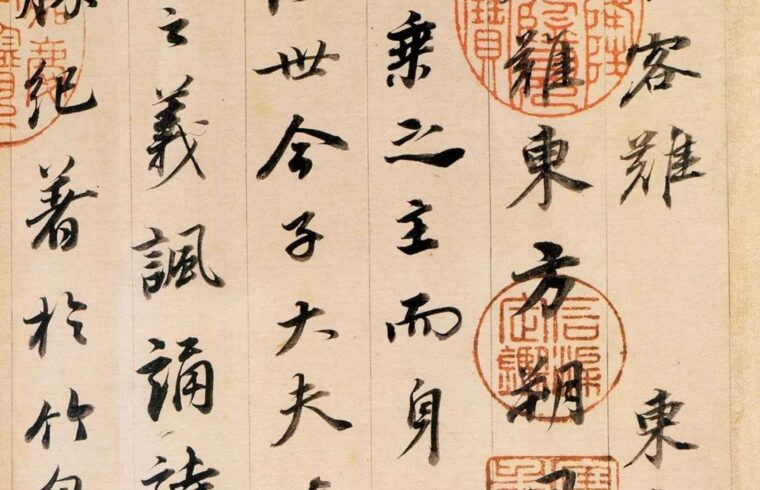 客難 東
難東方朔
乘之主而身
世今子大夫
之義諷誦詩
紀著於竹